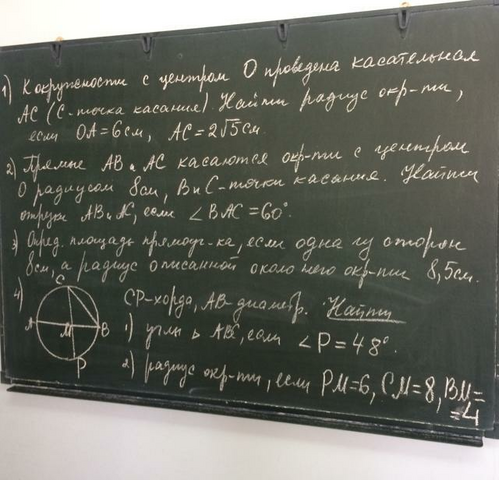 1) К окружности с центром О проведена касательная
АС (С-точка касания). Найти радиус окр-ти,
если ОА=6см, АС=2√5см.
2) Прямые АВ и АС касаются окр-ти с центром
О радиусом 8см, В и С-точки касания. Найти
отрезки АВ и АС, если ∠ВАС=60°.
3) Опред. площадь прямоуг-ка, если одна из сторон
8см, а радиус описанной около него окр-ти 8,5см.
4) С
А М В
Р
СР-хорда, АВ-диаметр. Найти
1) углы △ АВС, если ∠Р=48°.
2) радиус окр-ти, если РМ=6, СМ=8, ВМ=
=4